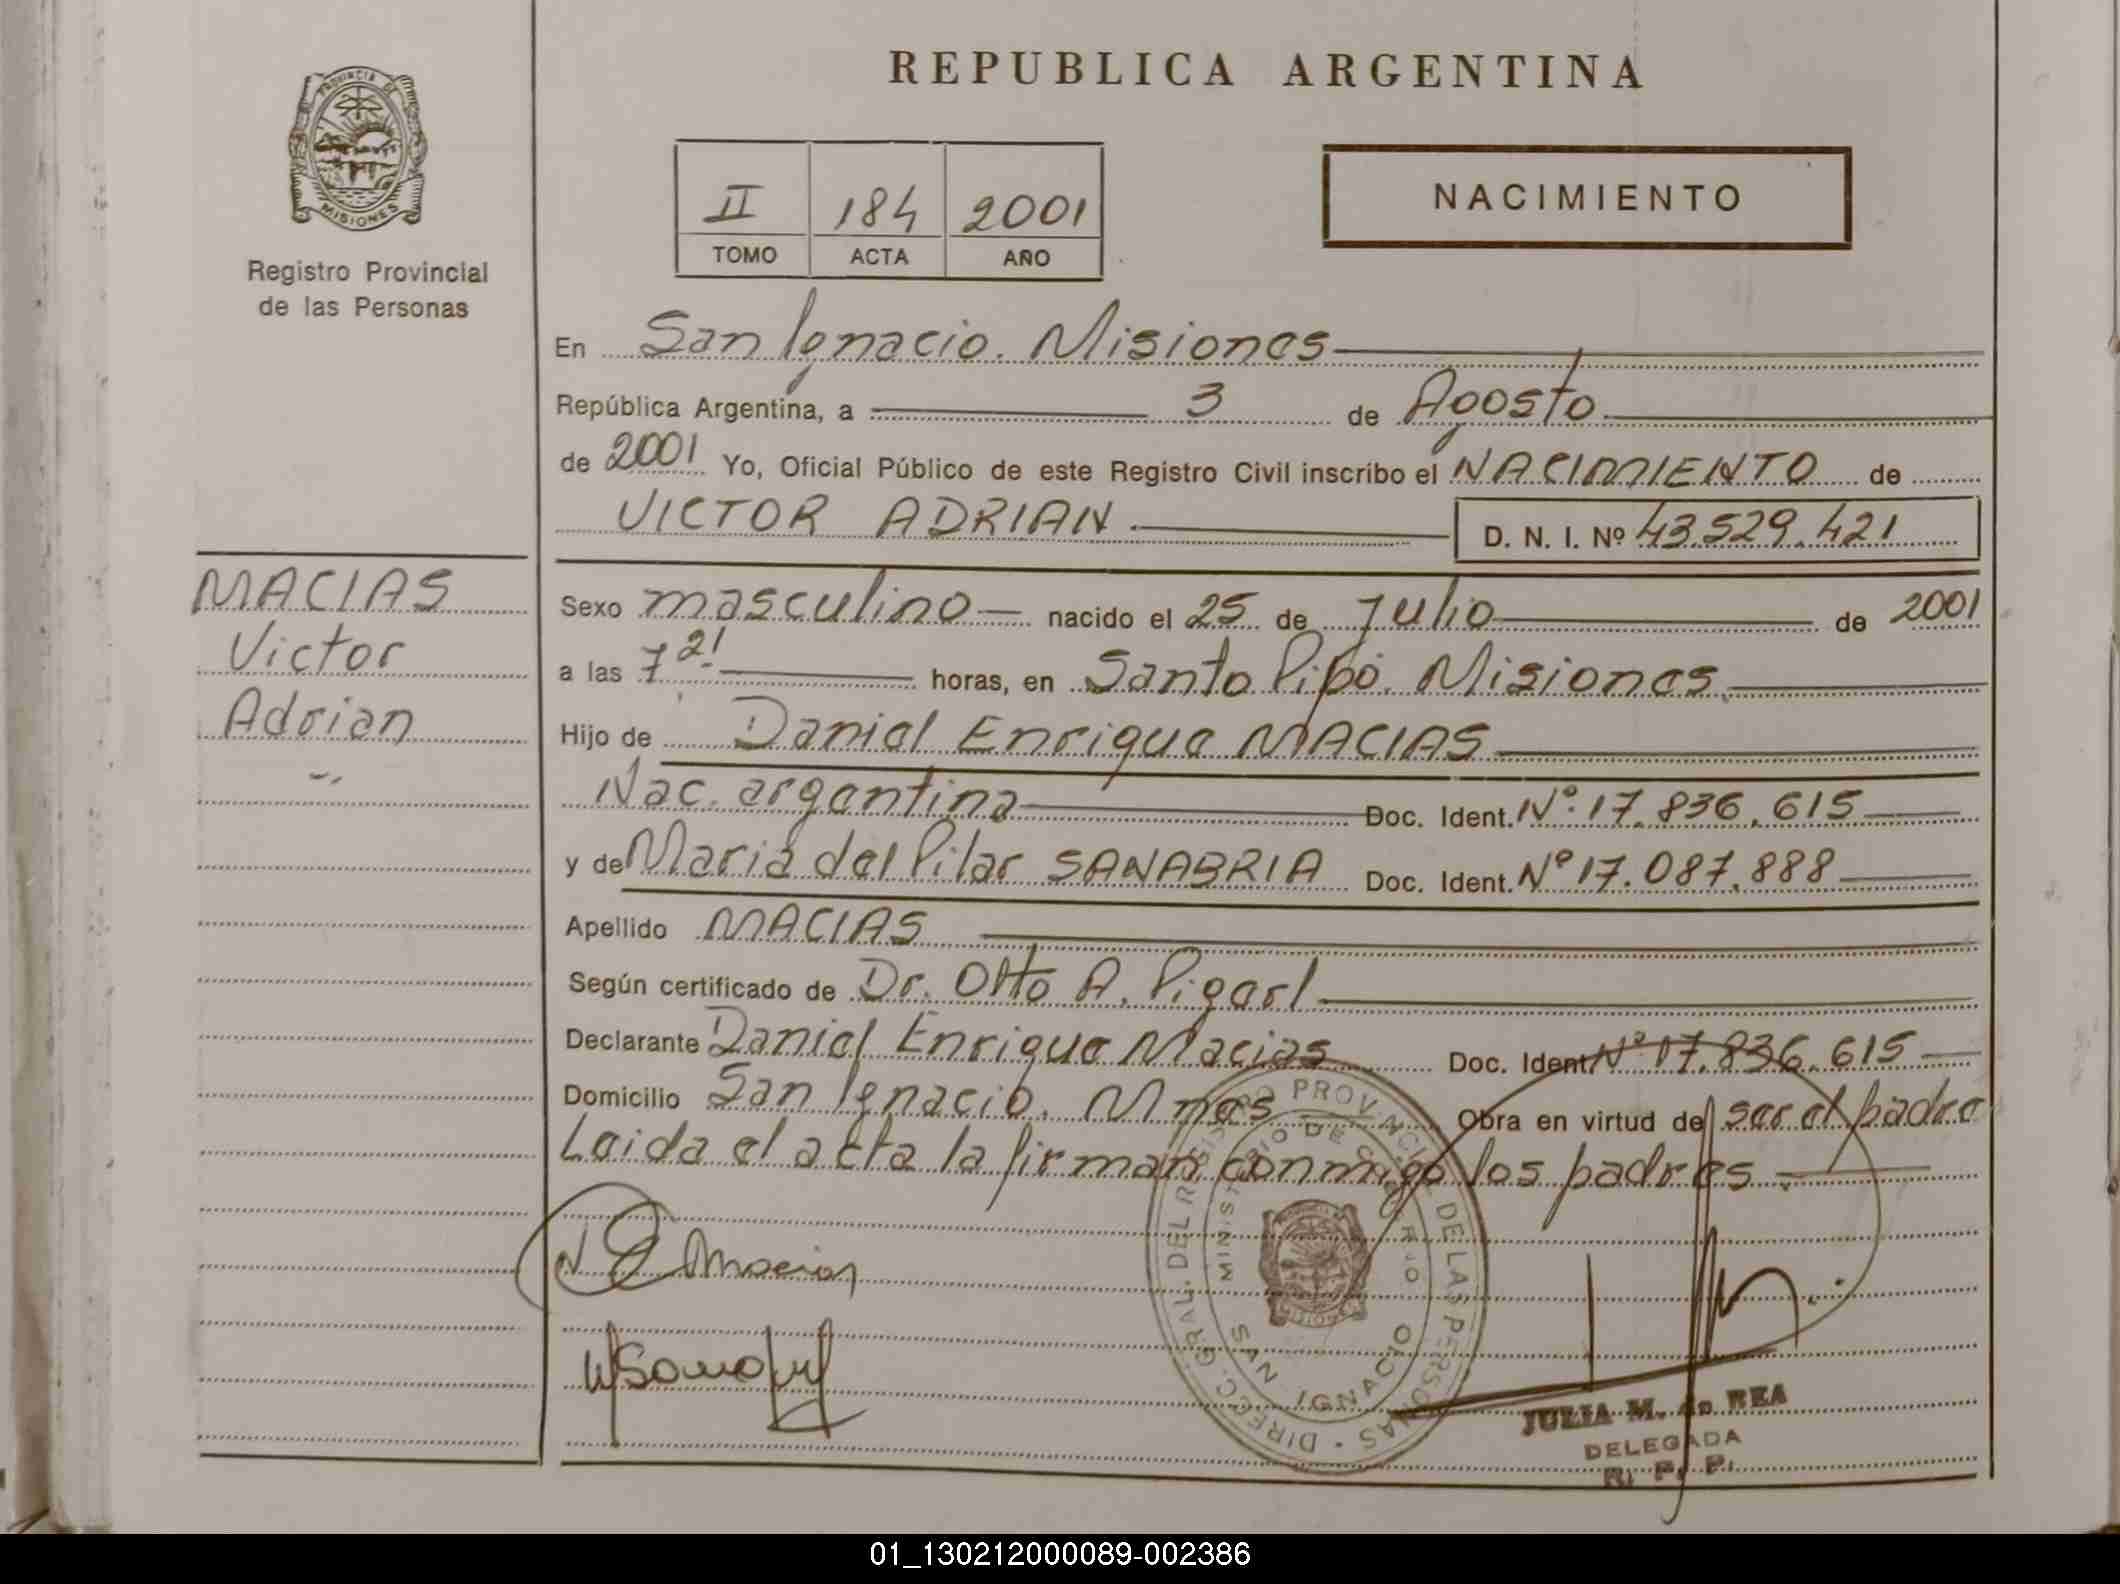 REPUBLICA ARGENTINA
PROVINCIA DE MISIONES
Registro Provincial
de las Personas
II 184 2001
TOMO ACTA AÑO
NACIMIENTO
En San Ignacio. Misiones
República Argentina, a 3 de Agosto
de 2001 Yo, Oficial Público de este Registro Civil inscribo el NACIMIENTO de
VICTOR ADRIAN. D. N. I. Nº 43.529.421
MACIAS
Victor
Adrian
Sexo masculino nacido el 25 de Julio de 2001
a las 7 21 horas, en Santo Pipó. Misiones.
Hijo de Daniel Enrique MACIAS
Nac. argentina Doc. Ident. Nº: 17.836.615
y de Maria del Pilar SANABRIA Doc. Ident. Nº 17.087.888
Apellido MACIAS
Según certificado de Dr. Otto A. Pigerl
Declarante Daniel Enrique Macias Doc. Ident. Nº 17.836.615
Domicilio San Ignacio. Mnes Obra en virtud de ser el padre
Leida el acta la firman conmigo los padres.
Macias
DIREC. GRAL. DEL REGISTRO PROVINCIAL DE LAS PERSONAS
MINISTERIO DE GOBIERNO
SAN IGNACIO
JULIA M. de REA
DELEGADA
R. P. P.
01_130212000089-002386